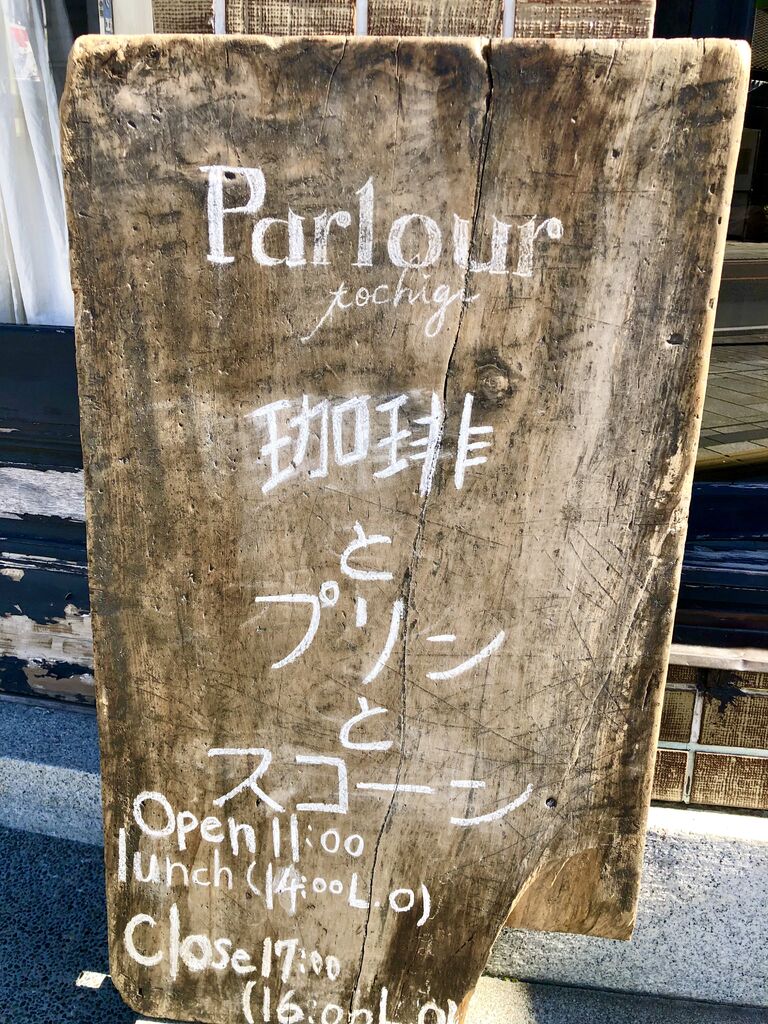 Parlour
tochigi
珈琲
と
プリン
と
スコーン
Open 11:00
lunch (14:00 L.O)
Close 17:00
(16:00 L.O)